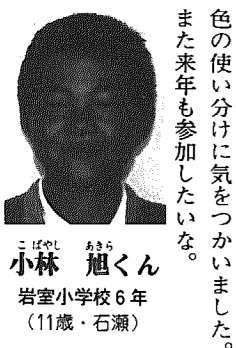 色の使い分けに気をつかいました。
また来年も参加したいな。
こばやし あきら
小林 旭くん
岩室小学校6年
（11歳・石瀬）